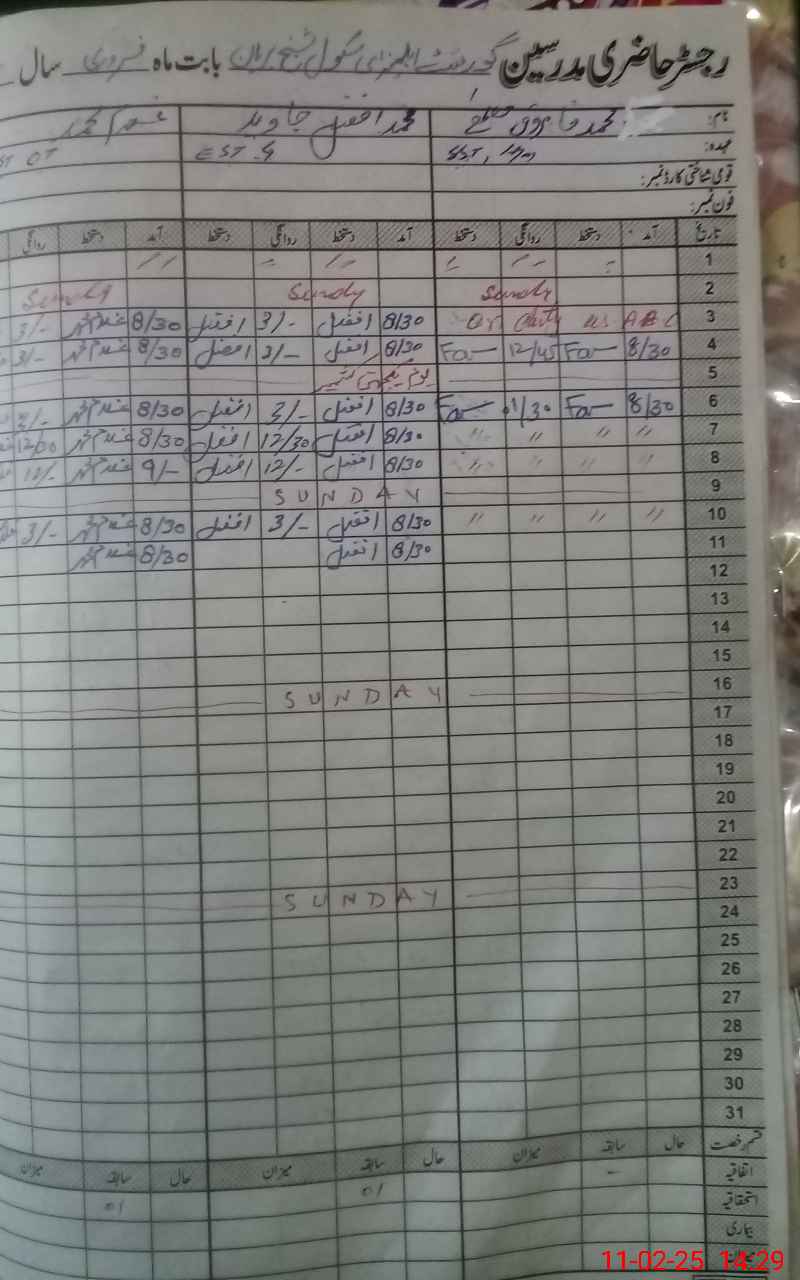 رجسٹر حاضری مدرسین گورنمنٹ ایلیمنٹری سکول شیخ بابت ماہ فروری سال
نام: محمد فاروق محمد افضل جاوید غلام محمد
عہدہ: SST, EST ST OT
قومی شناختی کارڈ نمبر:
فون نمبر:
تاریخ آمد دستخط روانگی دستخط آمد دستخط روانگی دستخط آمد دستخط روانگی
1 〃 〃 〃 〃 〃 〃
2 Sunday Sunday Sunday
3 On duty as 8/30 افضل 3/- افضل 8/30 غلام محمد 3/-
4 8/30 Far 12/45 Far 8/30 افضل 3/- افضل 8/30 غلام محمد 3/-
5 یوم یکجہتی کشمیر
6 8/30 Far 01/30 Far 8/30 افضل 3/- افضل 8/30 غلام محمد 3/-
7 〃 〃 〃 〃 8/30 افضل 12/30 افضل 8/30 غلام محمد 12/30
8 〃 〃 〃 〃 8/30 افضل 12/- افضل 9/- غلام محمد 12/-
9 SUNDAY
10 〃 〃 〃 〃 8/30 افضل 3/- افضل 8/30 غلام محمد 3/-
11 8/30 افضل 8/30 غلام محمد
12
13
14
15
16 SUNDAY
17
18
19
20
21
22
23 SUNDAY
24
25
26
27
28
29
30
31
قسم رخصت حال سابقہ میزان حال سابقہ میزان حال سابقہ میزان
اتفاقیہ - 01 01
استحقاقیہ
بیماری
میزان
11-02-25 14:29